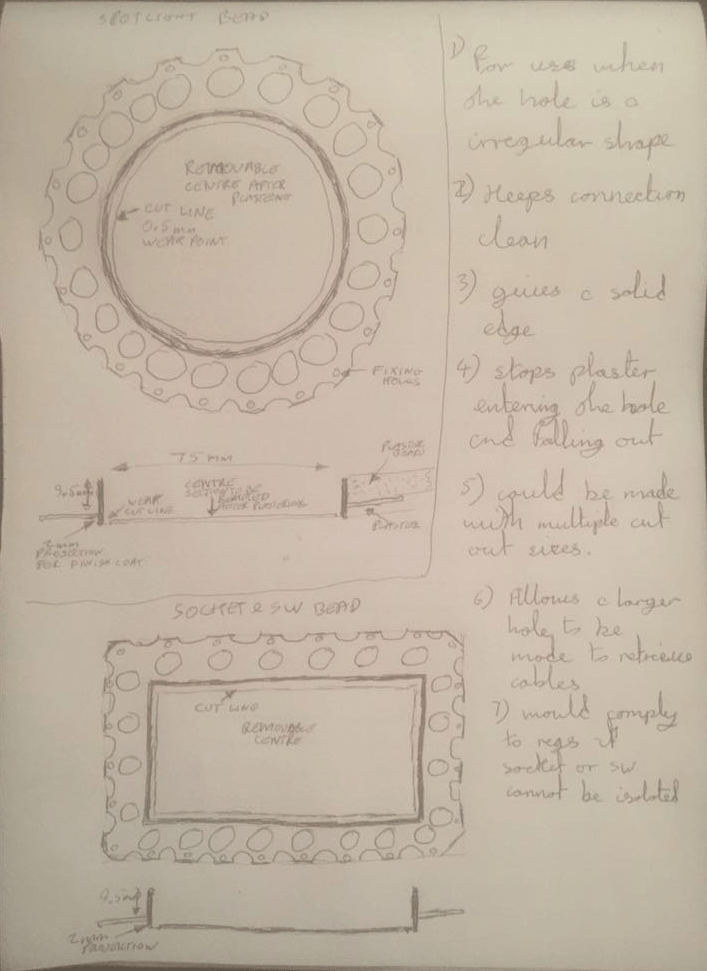 SPOTLIGHT BEAD
REMOVABLE
CENTRE AFTER
PLASTERING
CUT LINE
0.5mm
WEAR POINT
FIXING
HOLES
75 MM
9.5mm
WEAR
CUT LINE
CENTRE
SECTION TO BE
REMOVED
AFTER PLASTERING
PLASTER
BOARD
PLASTER
2mm
PROJECTION
FOR FINISH COAT
1) For use when
the hole is a
irregular shape
2) Keeps connection
clean
3) gives a solid
edge
4) stops plaster
entering the hole
and falling out
5) could be made
with multiple cut
out sizes.
6) Allows a larger
hole to be
made to retrieve
cables
7) would comply
to regs if
socket or sw
cannot be isolated
SOCKET & SW BEAD
CUT LINE
REMOVABLE
CENTRE
9.5mm
2mm
PROJECTION